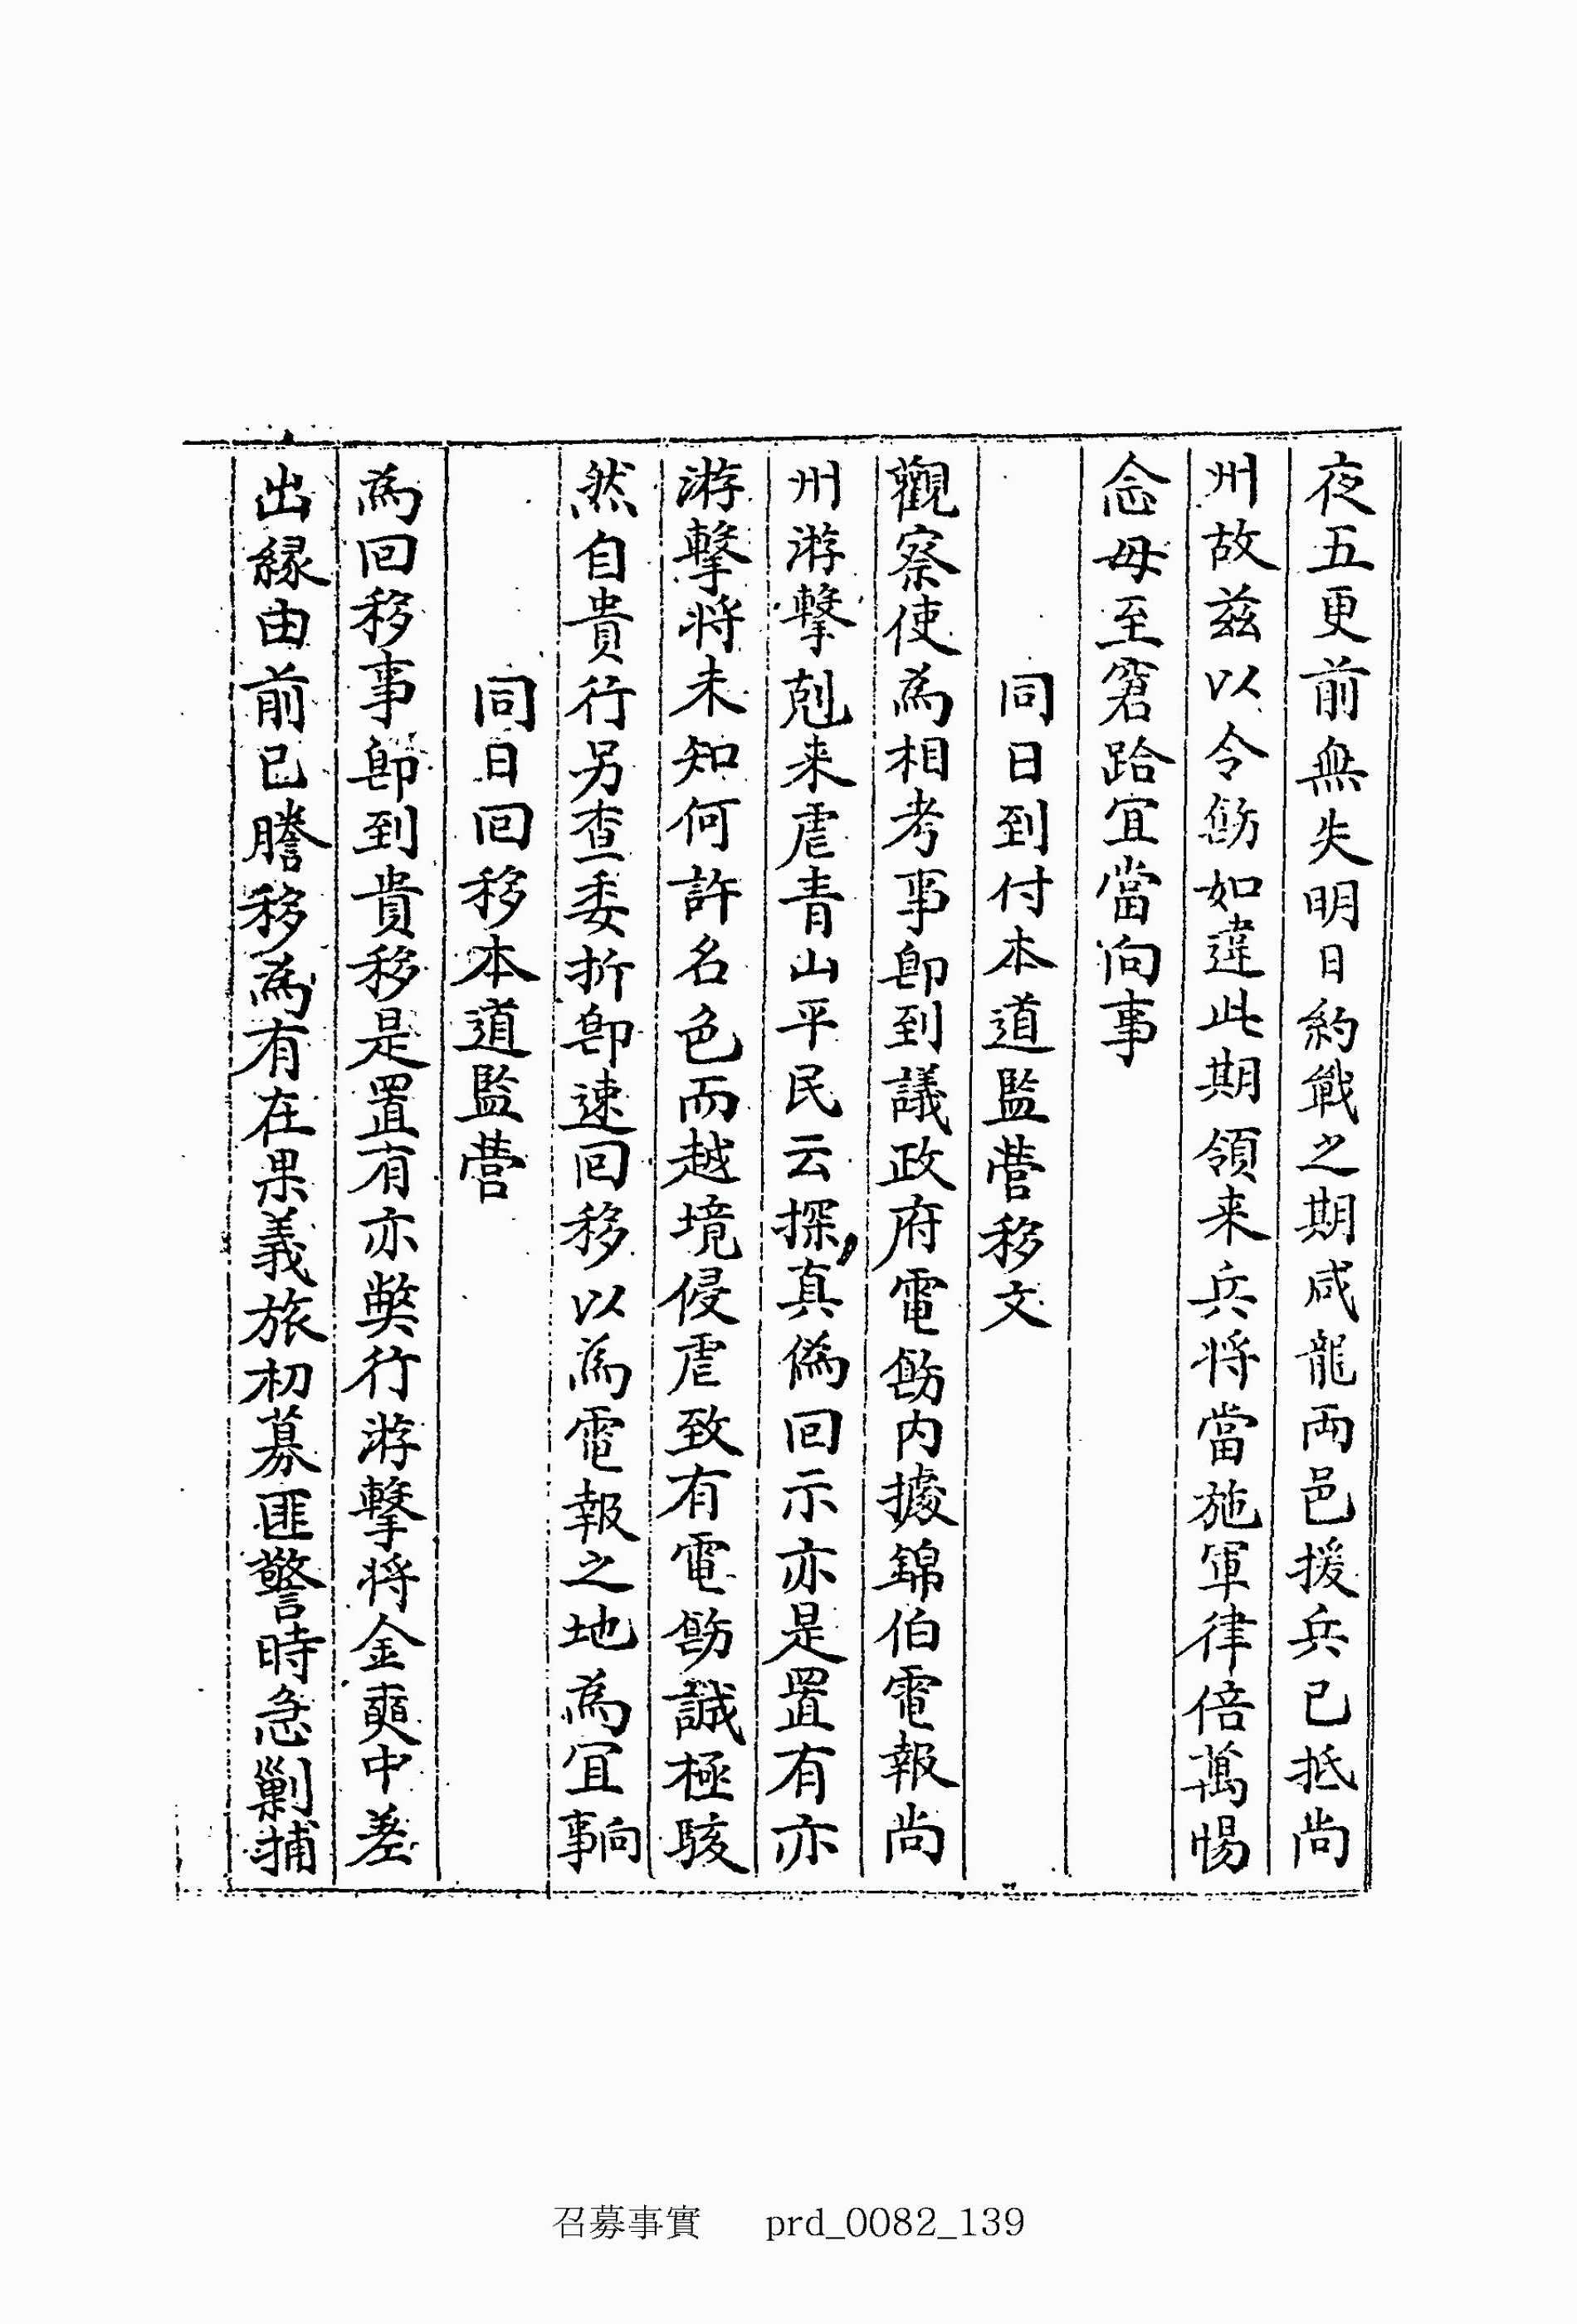 夜五更前無失明日約戰之期咸龍両邑援兵已抵尙
州故茲以令飭如違此期領来兵將當施軍律倍萬惕
念毋至窘跲宜當向事
同日到付本道監營移文
觀察使爲相考事卽到議政府電飭内據錦伯電報尙
州游擊剋来虐青山平民云探真僞回示亦是置有亦
游擊將未知何許名色而越境侵虐致有電飭誠極駭
然自貴行另查委折卽速回移以爲電報之地爲宜向事
同日回移本道監營
爲回移事卽到貴移是置有亦獘行游擊將金奭中差
出緣由前已謄移爲有在果義旅初募匪警時急剿捕
召募事實 prd_0082_139